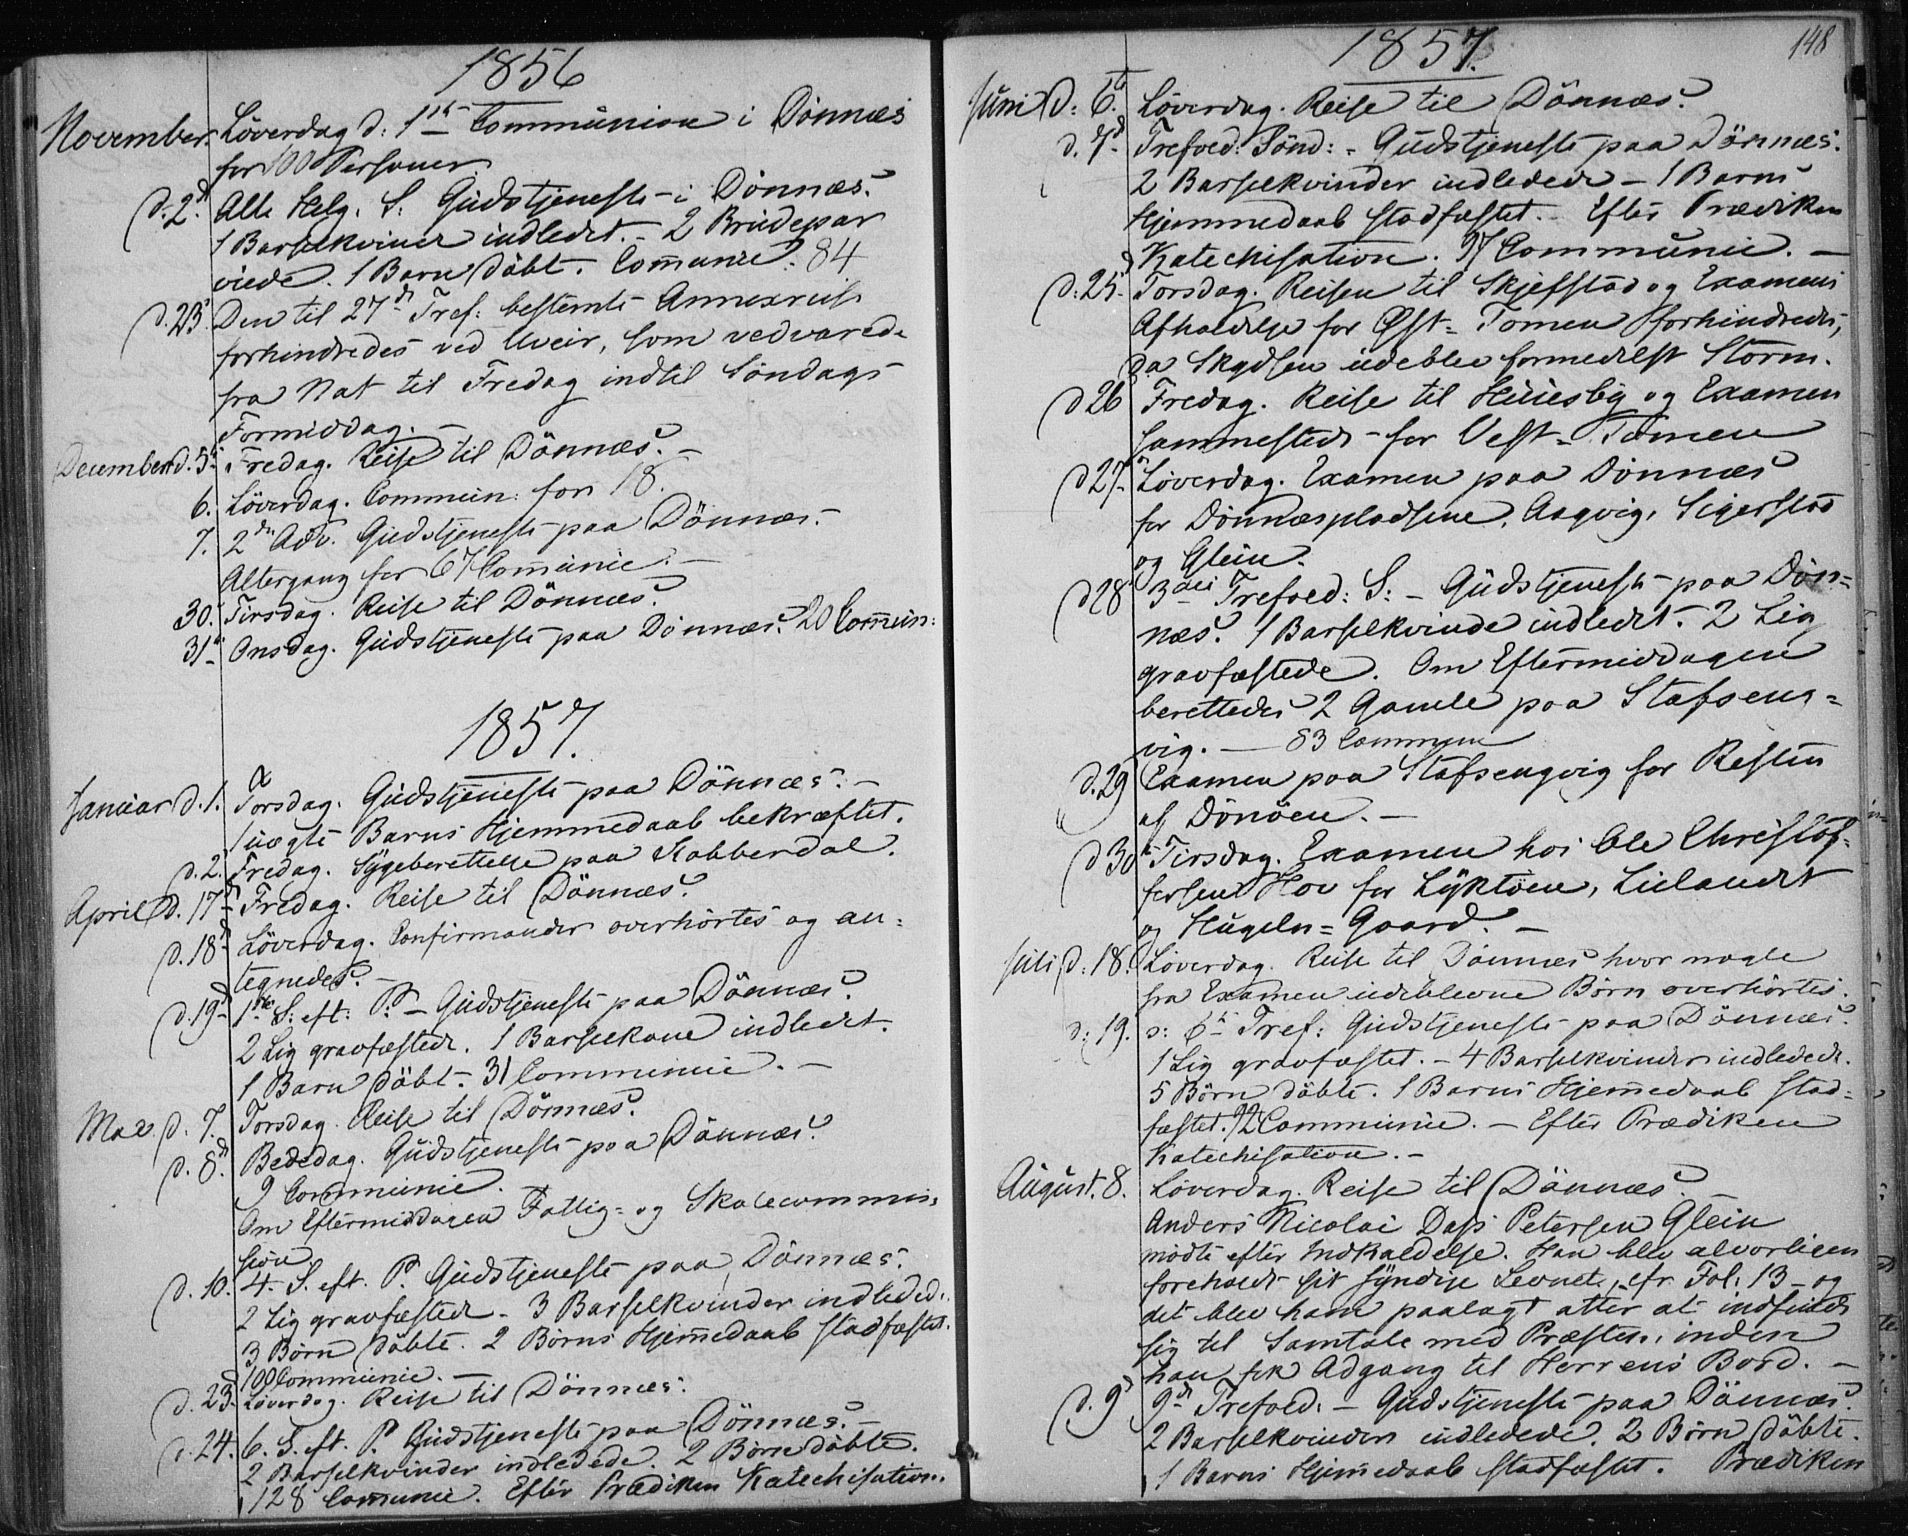 1856
November. Löverdag d: 1ste Communion i Dönnæs
for 100 Personer.
d. 2d Alle Helg. S: Gudstjeneste i Dönnæs.
1 Barselkvinde indledet. - 2 Brudepar
viede. 1 Barn döbt. Com̄unic: 84
d. 23. Den til 27de Tref: bestemte Annexreise
forhindredes ved Uveir, som vedvarede
fra Nat til Fredag indtil Söndags
Formiddag. -
December d. 5t Fredag. Reise til Dönnæs. -
6. Löverdag. Commun: for 18.
7. 2den Adv. Gudstjeneste paa Dönnæs. -
Altergang for 67 Com̄unic. -
30. Tirsdag. Reise til Dönnæs.
31te Onsdag. Gudstjeneste paa Dönnæs. 20 Com̄un:
1857.
Januar d. 1. Torsdag. Gudstjeneste paa Dönnæs. -
1 uægte Barns Hjemmedaab bekræftet.
d. 2. Fredag. Sygeberettelse paa Kobberdal.
April d. 17d Fredag. Reise til Dönnæs.
d. 18d Löverdag. Confirmander overhörtes og an=
tegnedes. -
d. 19d 1ste S: eft: P. - Gudstjeneste paa Dönnæs.
2 Lig gravfæstede. 1 Barselkone indledet.
1 Barn döbt. 31 Communic. -
Mai d. 7. Torsdag. Reise til Dönnæs.
d. 8d Bededag. Gudstjeneste paa Dönnæs.
9 Communic.
Om Eftermiddagen Fattig= og Skolecommis=
sion
d. 10. 4. S. eft. P. Gudstjeneste paa Dönnæs.
2 Lig gravfæstede - 3 Barselkvinder indledede.
3 Börn döbte. 2 Börns Hjem̄edaab stadfæstet.
100 Communic. -
d. 23d Löverdag. Reise til Dönnæs.
d. 24. 6. S. eft. P. Gudstjeneste paa Dönnæs. -
2 Barselkvinder indledede. 2 Börn döbte.
128 Com̄unic. Efter Prædiken Katechisation.
148
1857.
Juni d: 6te Löverdag. Reise til Dönnæs.
d. 7d Trefoed: Sönd: - Gudstjeneste paa Dönnæs.
2 Barselkvinder indledede - 1 Barns
Hjemmedaab stadfæstet. - Efter Prædiken
Katechisation. 97 Communic. -
d: 25d Torsdag. Reisen til Skjefstad og Examens
Afholdelse for Öst= Tomen forhindredes,
da Skydsen udeblev formedelst Storm.
d 26 Fredag. Reise til Huusby og Examen
sammesteds for Vest= Tomen
d 27d Löverdag. Examen paa Dönnæs
for Dönnæspladsene, Aagvig, Sigerstad
og Glein.
d 28d 3die Trefoed: S: - Gudstjeneste paa Dön=
næs. 1 Barselkvinde indledet. 2 Lig
gravfæstede. Om Eftermiddagen
berettedes 2 Gamle paa Stafseng=
vig. - 83 Commun
d. 29 Examen paa Stafsengvig for Resten
af Dönöen. -
d 30te Tirsdag. Examen hos Ole Christof=
fersen Hov for Lyktöen, Lielandet
og Hugeln= Gaard. -
Juli d: 18. Löverdag. Reise til Dönnæs hvor nogle
fra Examen udeblevne Börn overhörtes.
d: 19. s: 6te Tref: Gudstjeneste paa Dönnæs.
1 Lig gravfæstet. - 4 Barselkvinder indledede.
5 Börn döbte. 1 Barns Hjem̄edaab stad=
fæstet. 92 Communic. - Efter Prædiken
Katechisation. -
August. 8. Löverdag. Reise til Dönnæs.
Anders Nicolai Dass Petersen Glein
mödte efter Indkaldelse. Han blev alvorligen
foreholdt sit syndige Levnet, cfr. Fol: 13 - og
det blev ham paalagt atter at indfinde
sig til Samtale med Præsten, inden
han fik Adgang til Herrens Bord. -
d. 9d 9de Trefoed. - Gudstjeneste paa Dönnæs.
2 Barselkvinder indledede. 2 Börn döbte.
1 Barns Hjem̄edaab stadfæstet. Prædiken